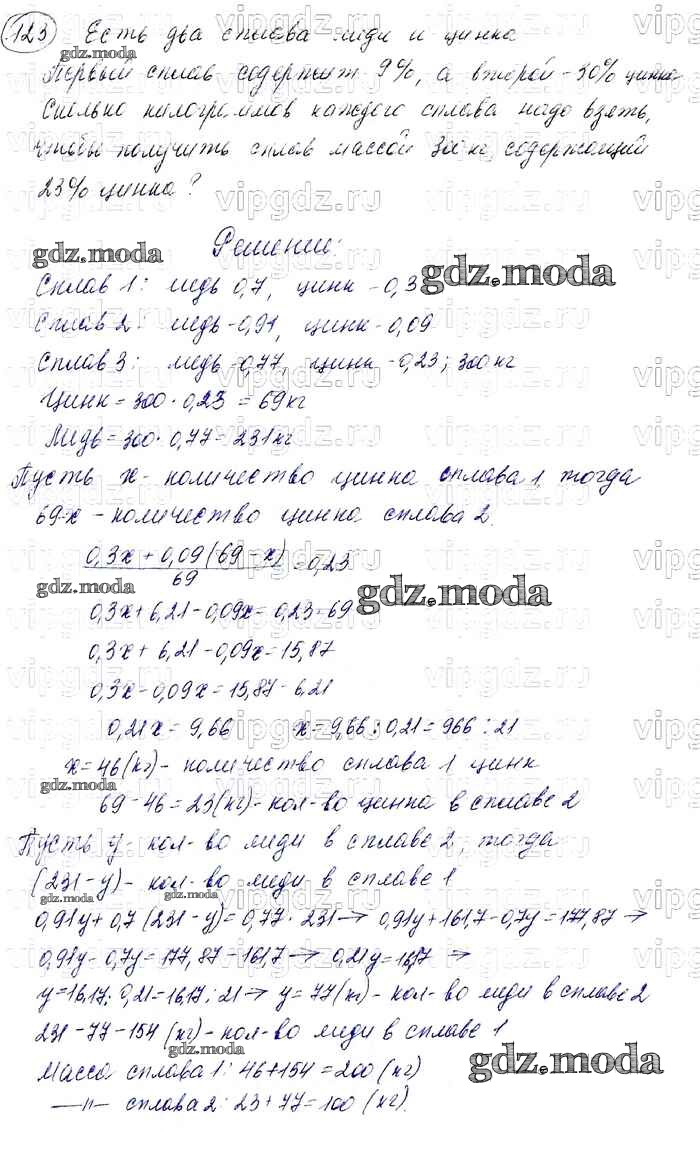 123 Есть два сплава меди и цинка
Первый сплав содержит 9%, а второй - 30% цинка
Сколько килограммов каждого сплава надо взять,
чтобы получить сплав массой 300 кг, содержащий
23% цинка?
Решение:
Сплав 1: медь 0,7, цинк - 0,3
Сплав 2: медь - 0,91, цинк - 0,09
Сплав 3: медь - 0,77, цинк - 0,23; 300 кг
Цинк = 300 · 0,23 = 69 кг
Медь = 300 · 0,77 = 231 кг
Пусть x - количество цинка сплава 1, тогда
69-x - количество цинка сплава 2.
(0,3x + 0,09(69-x))/69 = 0,23
0,3x + 6,21 - 0,09x = 0,23·69
0,3x + 6,21 - 0,09x = 15,87
0,3x - 0,09x = 15,87 - 6,21
0,21x = 9,66 x = 9,66 : 0,21 = 966 : 21
x = 46 (кг) - количество сплава 1 цинк
69 - 46 = 23 (кг) - кол-во цинка в сплаве 2
Пусть y - кол-во меди в сплаве 2, тогда
(231 - y) - кол-во меди в сплаве 1
0,91y + 0,7 (231 - y) = 0,77 · 231 → 0,91y + 161,7 - 0,7y = 177,87 →
0,91y - 0,7y = 177,87 - 161,7 → 0,21y = 16,17 →
y = 16,17 : 0,21 = 16,17 : 21 → y = 77 (кг) - кол-во меди в сплаве 2
231 - 77 - 154 (кг) - кол-во меди в сплаве 1
Масса сплава 1: 46 + 154 = 200 (кг)
—"— сплава 2: 23 + 77 = 100 (кг).
gdz.moda
vipgdz.ru